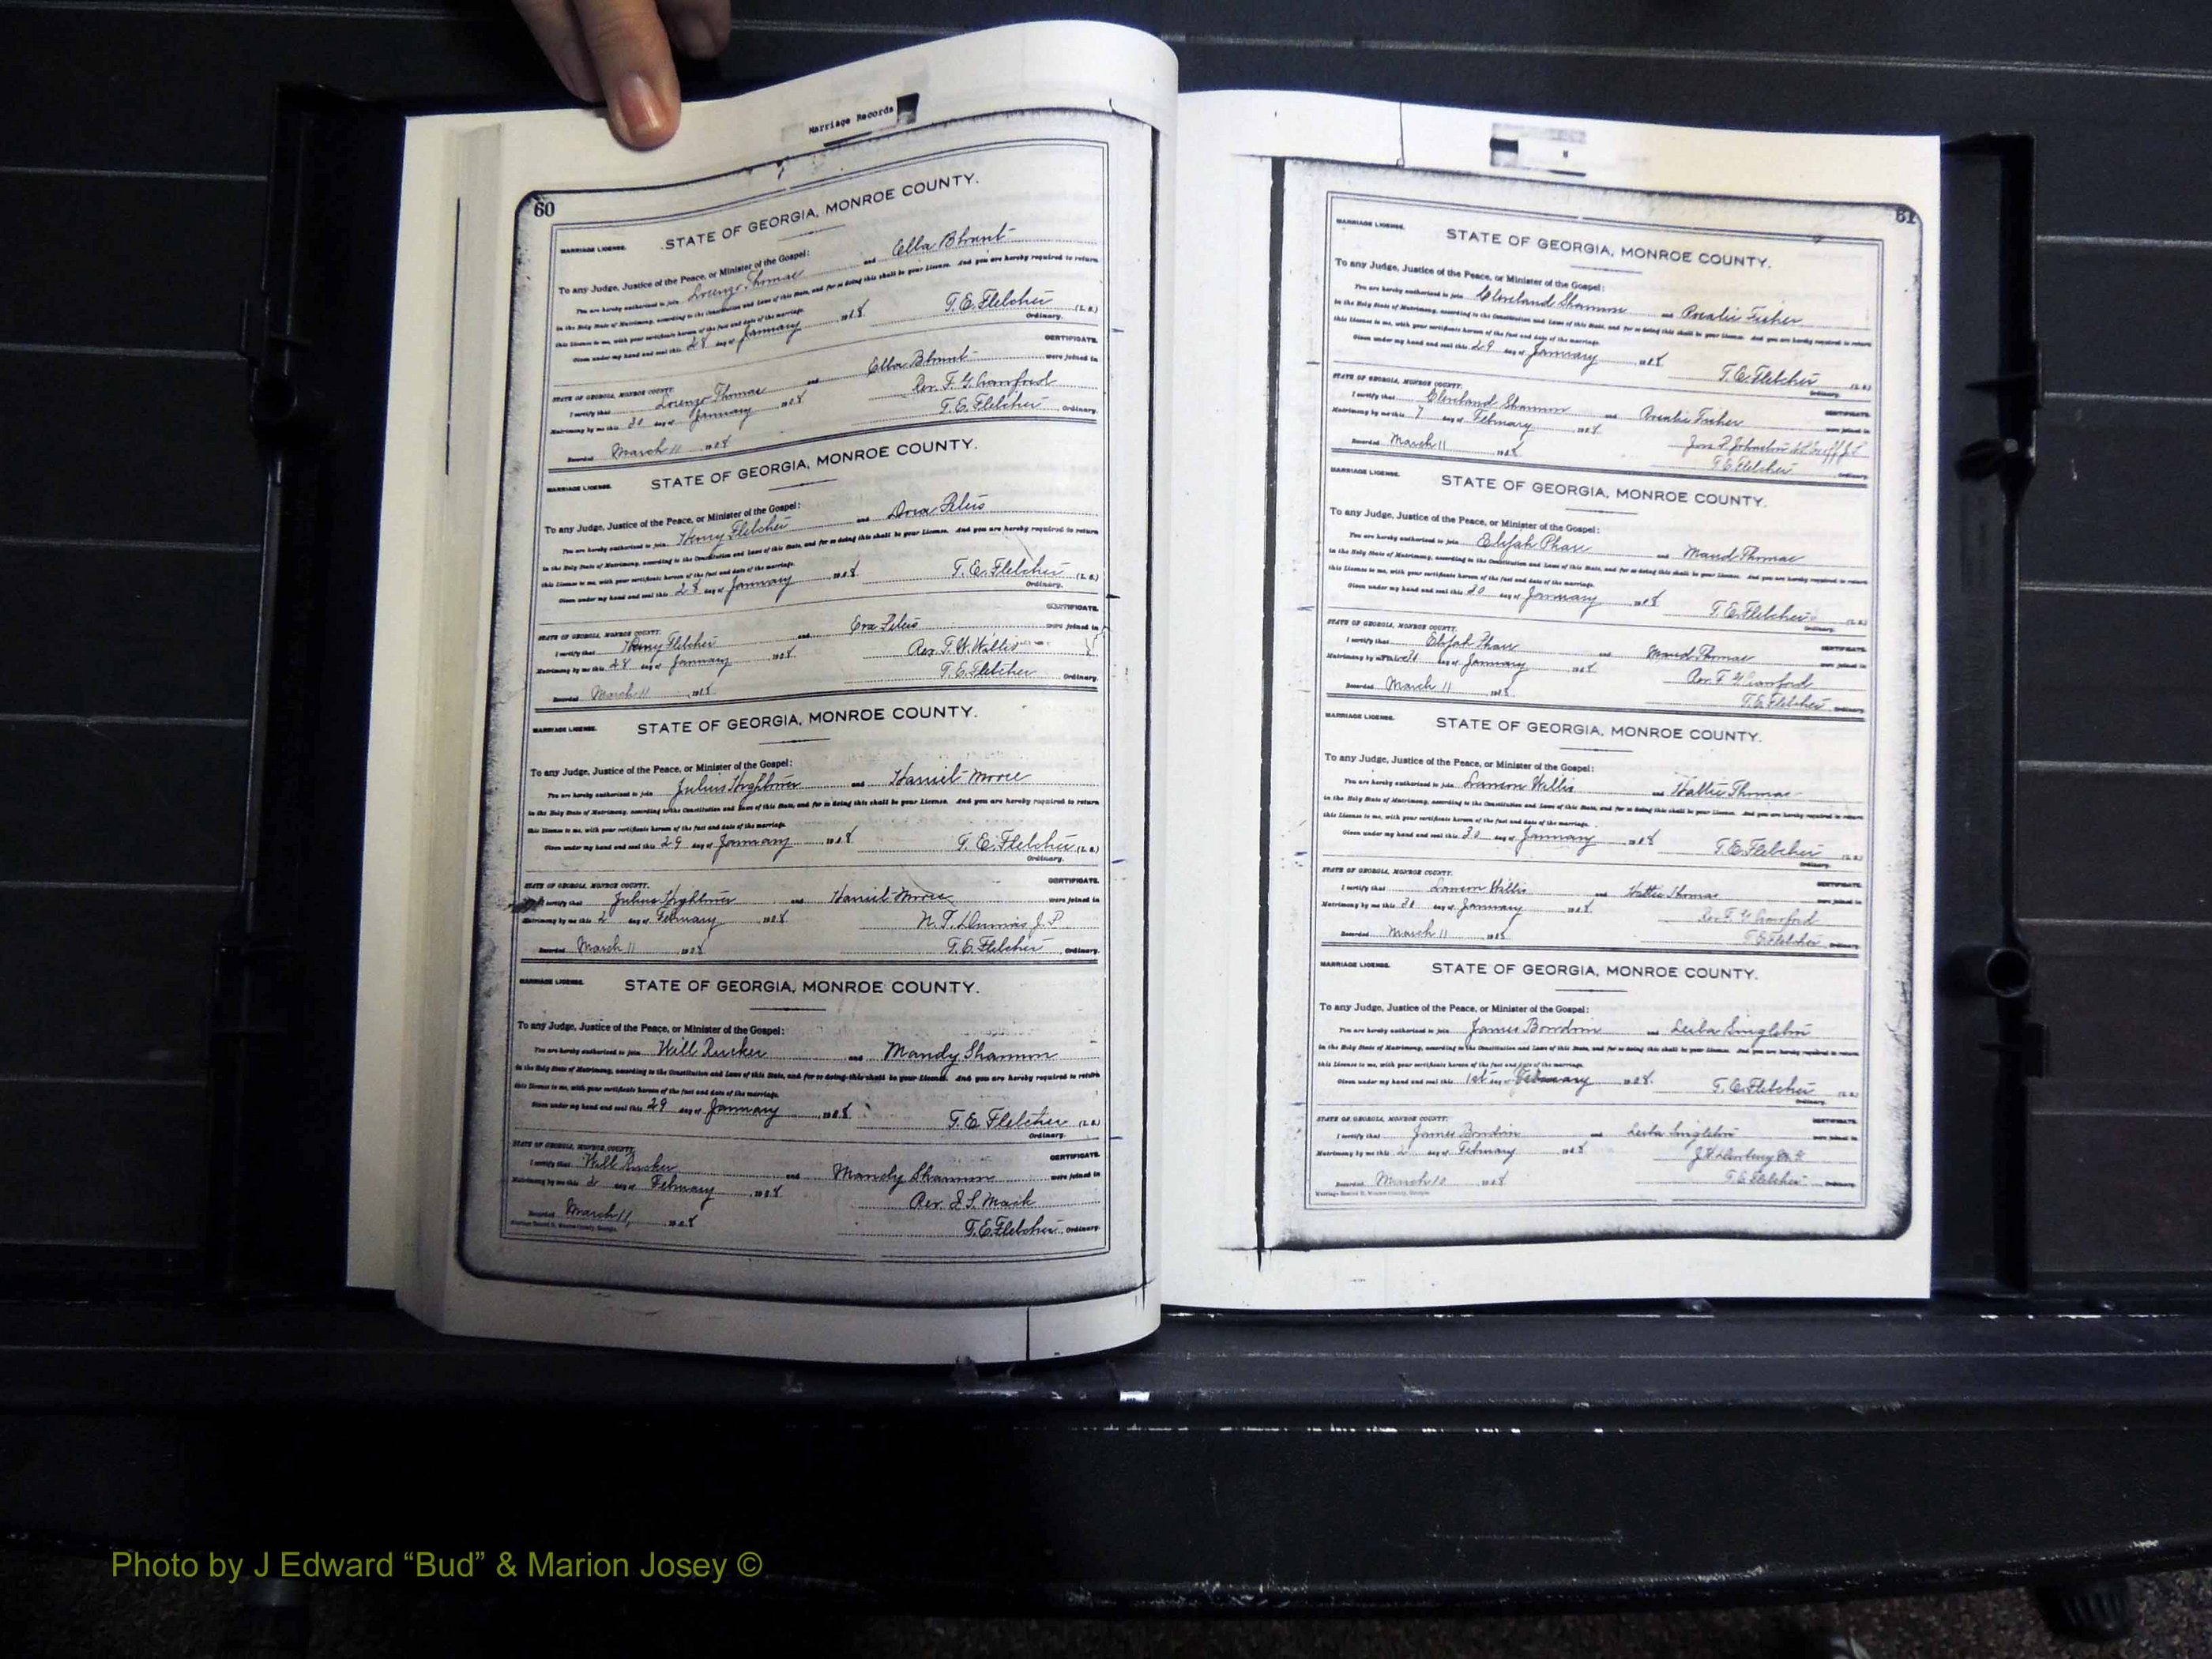 Marriage Records
60
STATE OF GEORGIA, MONROE COUNTY.
MARRIAGE LICENSE.
To any Judge, Justice of the Peace, or Minister of the Gospel:
You are hereby authorized to join Lorenzo Thomas and Ella Blunt
in the Holy State of Matrimony, according to the Constitution and Laws of this State, and for so doing this shall be your License. And you are hereby required to return
this License to me, with your certificate hereon of the fact and date of the marriage.
Given under my hand and seal this 28 day of January 1908
T. E. Fletcher (L. S.)
Ordinary.
STATE OF GEORGIA, MONROE COUNTY. CERTIFICATE.
I certify that Lorenzo Thomas and Ella Blunt were joined in
Matrimony by me this 30 day of January 1908 Rev. F. G. Crawford
Recorded March 11 1908 T. E. Fletcher Ordinary.
MARRIAGE LICENSE. STATE OF GEORGIA, MONROE COUNTY.
To any Judge, Justice of the Peace, or Minister of the Gospel:
You are hereby authorized to join Henry Fletcher and
in the Holy State of Matrimony, according to the Constitution and Laws of this State, and for so doing this shall be your License. And you are hereby required to return
this License to me, with your certificate hereon of the fact and date of the marriage.
Given under my hand and seal this 28 day of January 1908 T. E. Fletcher (L. S.)
Ordinary.
STATE OF GEORGIA, MONROE COUNTY. CERTIFICATE.
I certify that Henry Fletcher and were joined in
Matrimony by me this 28 day of January 1908 Rev. Willis
Recorded March 11 1908 T. E. Fletcher Ordinary.
MARRIAGE LICENSE. STATE OF GEORGIA, MONROE COUNTY.
To any Judge, Justice of the Peace, or Minister of the Gospel:
You are hereby authorized to join Julius Hightower and Harriet Moore
in the Holy State of Matrimony, according to the Constitution and Laws of this State, and for so doing this shall be your License. And you are hereby required to return
this License to me, with your certificate hereon of the fact and date of the marriage.
Given under my hand and seal this 29 day of January 1908 T. E. Fletcher (L. S.)
Ordinary.
STATE OF GEORGIA, MONROE COUNTY. CERTIFICATE.
I certify that Julius Hightower and Harriet Moore were joined in
Matrimony by me this 2 day of February 1908 N. T. Dennis J. P.
Recorded March 11 1908 T. E. Fletcher Ordinary.
MARRIAGE LICENSE. STATE OF GEORGIA, MONROE COUNTY.
To any Judge, Justice of the Peace, or Minister of the Gospel:
You are hereby authorized to join Will Rucker and Mandy Shannon
in the Holy State of Matrimony, according to the Constitution and Laws of this State, and for so doing this shall be your License. And you are hereby required to return
this License to me, with your certificate hereon of the fact and date of the marriage.
Given under my hand and seal this 29 day of January 1908 T. E. Fletcher (L. S.)
Ordinary.
STATE OF GEORGIA, MONROE COUNTY. CERTIFICATE.
I certify that Will Rucker and Mandy Shannon were joined in
Matrimony by me this day of February 1908 Rev. Mack
Recorded March 11, 1908 T. E. Fletcher Ordinary.
61
MARRIAGE LICENSE. STATE OF GEORGIA, MONROE COUNTY.
To any Judge, Justice of the Peace, or Minister of the Gospel:
You are hereby authorized to join Cleveland Shannon and Rosalie Fisher
in the Holy State of Matrimony, according to the Constitution and Laws of this State, and for so doing this shall be your License. And you are hereby required to return
this License to me, with your certificate hereon of the fact and date of the marriage.
Given under my hand and seal this 29 day of January 1908 T. E. Fletcher (L. S.)
Ordinary.
STATE OF GEORGIA, MONROE COUNTY. CERTIFICATE.
I certify that Cleveland Shannon and Rosalie Fisher were joined in
Matrimony by me this 7 day of February 1908 Johnston
Recorded March 11 1908 T. E. Fletcher Ordinary.
MARRIAGE LICENSE. STATE OF GEORGIA, MONROE COUNTY.
To any Judge, Justice of the Peace, or Minister of the Gospel:
You are hereby authorized to join Elijah Phan and Maud Thomas
in the Holy State of Matrimony, according to the Constitution and Laws of this State, and for so doing this shall be your License. And you are hereby required to return
this License to me, with your certificate hereon of the fact and date of the marriage.
Given under my hand and seal this 30 day of January 1908 T. E. Fletcher (L. S.)
Ordinary.
STATE OF GEORGIA, MONROE COUNTY. CERTIFICATE.
I certify that Elijah Phan and Maud Thomas were joined in
Matrimony by me this day of January 1908 Rev. F. G. Crawford
Recorded March 11 1908 T. E. Fletcher Ordinary.
MARRIAGE LICENSE. STATE OF GEORGIA, MONROE COUNTY.
To any Judge, Justice of the Peace, or Minister of the Gospel:
You are hereby authorized to join Lawson Willis and Hattie Thomas
in the Holy State of Matrimony, according to the Constitution and Laws of this State, and for so doing this shall be your License. And you are hereby required to return
this License to me, with your certificate hereon of the fact and date of the marriage.
Given under my hand and seal this 30 day of January 1908 T. E. Fletcher (L. S.)
Ordinary.
STATE OF GEORGIA, MONROE COUNTY. CERTIFICATE.
I certify that Lawson Willis and Hattie Thomas were joined in
Matrimony by me this 30 day of January 1908 Rev. F. G. Crawford
Recorded March 11 1908 T. E. Fletcher Ordinary.
MARRIAGE LICENSE. STATE OF GEORGIA, MONROE COUNTY.
To any Judge, Justice of the Peace, or Minister of the Gospel:
You are hereby authorized to join James Bowdoin and Leila Singleton
in the Holy State of Matrimony, according to the Constitution and Laws of this State, and for so doing this shall be your License. And you are hereby required to return
this License to me, with your certificate hereon of the fact and date of the marriage.
Given under my hand and seal this 1st day of February 1908. T. E. Fletcher (L. S.)
Ordinary.
STATE OF GEORGIA, MONROE COUNTY. CERTIFICATE.
I certify that James Bowdoin and Leila Singleton were joined in
Matrimony by me this 2 day of February 1908
Recorded March 10 1908 T. E. Fletcher Ordinary.
Marriage Record, Monroe County, Georgia.
Photo by J Edward “Bud” & Marion Josey ©